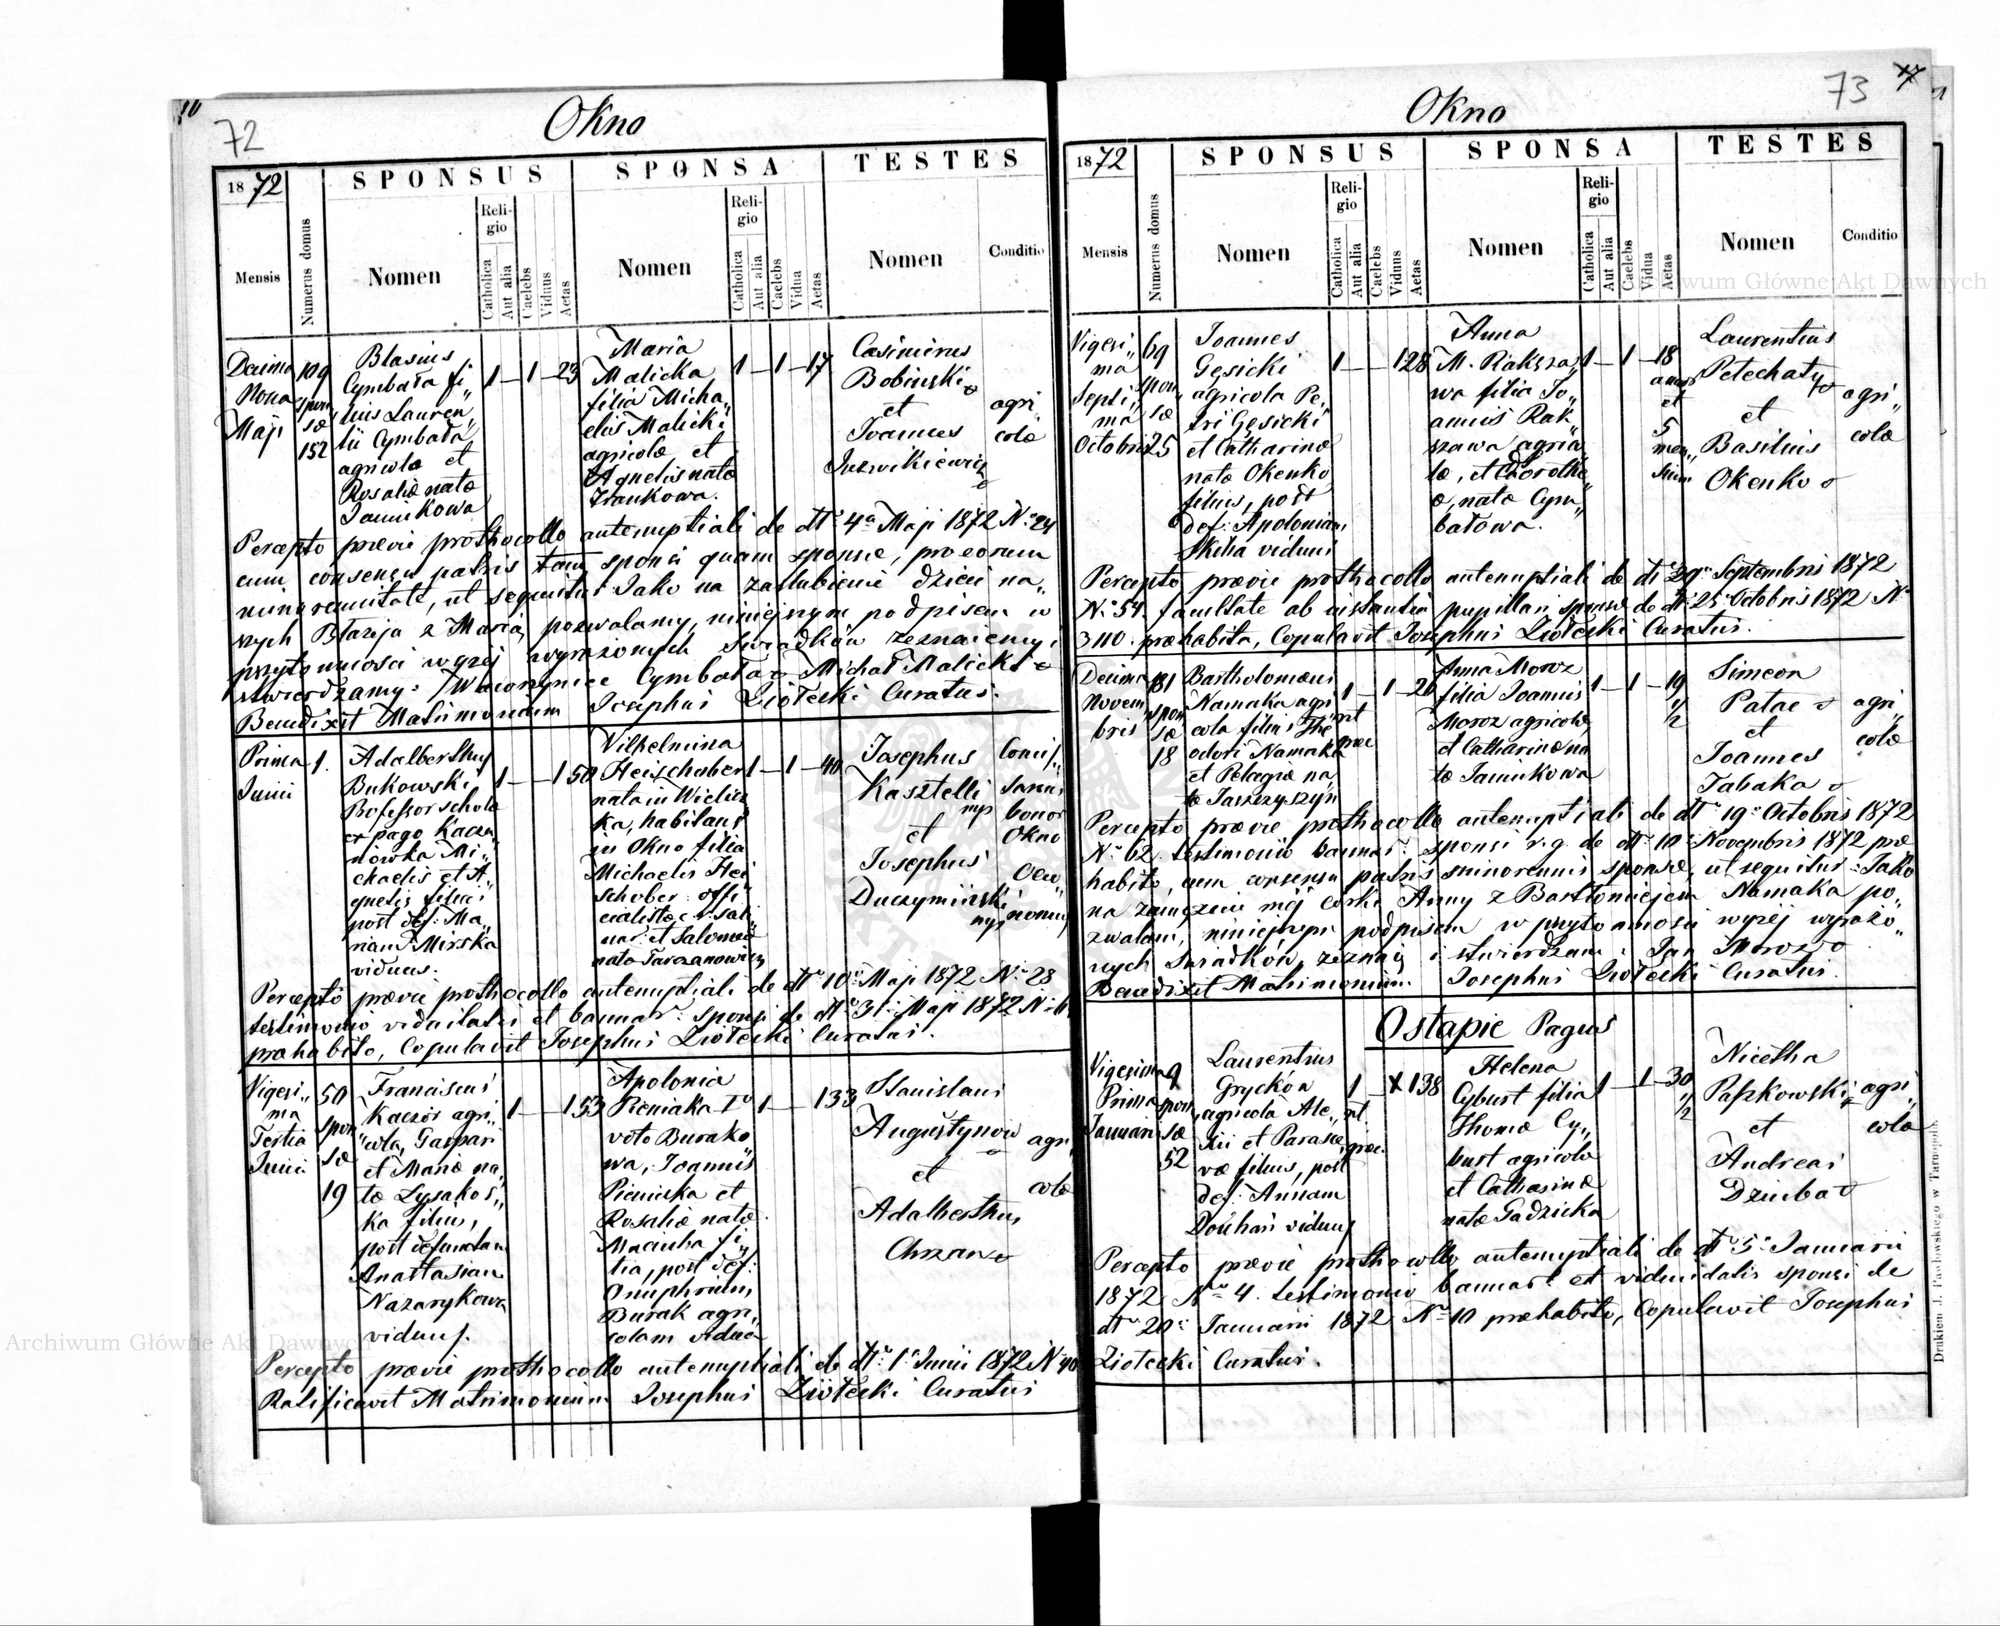 72
Okno
1872
SPONSUS
SPONSA
TESTES
Mensis
Numerus domus
Nomen
Religio
Catholica
Aut alia
Caelebs
Viduus
Aetas
Nomen
Religio
Catholica
Aut alia
Caelebs
Vidua
Aetas
Nomen
Conditio
Decima
Nona
Maji
109
spon
sæ
152
Blasius
Cymbała fi„
lius Lauren„
tii Cymbała
agricolæ et
Rosaliæ natæ
Jannikowa
1 — 1 — 23
Maria
Malicka
filia Micha„
elis Malicki
agricolæ et
Agnetis natæ
Frankowa.
1 — 1 — 17
Casimirus
Bobinski
et
Joannes
agri„
colæ
Percepto prævie prothocollo antenuptiali de dtto 4a Maji 1872 No 24
cum consensu patris tam sponsi quam sponsæ, pro eorum
minorennitate, ut sequitur: Jako na zaślubienie dzieci na„
szych Błażeja z Marią pozwalamy, niniejszym podpisem w
przytomności wyżej wyrażonych Świadków zeznajemy i
stwierdzamy: Wawrzyniec Cymbała Michał Malicki
Benedixit Matrimonium Josephus Ziołecki Curatus.
Prima
Junii
1.
Adalberthus
Bukowski
Professor scholæ
ex pago Kacza„
nówka Mi„
chaelis et A„
gnetis filius
post def: Ma„
riam Mirska
viduus.
1 — — 1 50
Vilhelmina
Heischober
nata in Wielicz
ka, habitans
in Okno filia
Michaelis Hei
schober offi
cialistæ c. r. sali
nar: et Salomeæ
natæ Tarczanowicz
1 — 1 — 40
Josephus
Kasztelli
mp
et
Josephus
Duczymiński
mp
bonor
Okno
Oeco„
nomus
Percepto prævie prothocollo antenuptiali de dtto 10a Maji 1872 No 28
testimonio viduitatis et bannor: sponsi de dtto 31a Maji 1872 No
præhabito, Copulavit Josephus Ziołecki Curatus.
Vigesi„
ma
Tertia
Junii
50
spon
sæ
19
Franciscus
Kaczór agri„
cola, Gaspari
et Mariæ na„
tæ Lysakos„
ka filius,
post defunctam
Anastasiam
Nazarykowa
viduus.
1 — — 1 53
Apolonia
Pieniaka Io
voto Burako
wa, Joannis
Pieniaka et
Rosaliæ natæ
Maciuha fi„
lia, post def:
Onuphrium
Burak agri„
colam vidua
1 — — 1 33
Stanislaus
Augustynow
et
Adalberthus
Chrzan
agri„
colæ
Percepto prævie prothocollo antenuptiali de dtto 1a Junii 1872 No 40
Ratificavit Matrimonium Josephus Ziołecki Curatus
73
Okno
1872
SPONSUS
SPONSA
TESTES
Mensis
Numerus domus
Nomen
Religio
Catholica
Aut alia
Caelebs
Viduus
Aetas
Nomen
Religio
Catholica
Aut alia
Caelebs
Vidua
Aetas
Nomen
Conditio
Vigesi„
ma
Septi„
ma
Octobris
69
spon„
sæ
25
Joannes
Gęsicki
agricola Pe„
tri Gęsicki
et Catharinæ
natæ Okenko
filius, post
def: Apoloniam
Skiba viduus
1 — — 1 28
Anna
M. Raksza„
wa filia Jo„
annis Rak„
szawa agrico
læ, et Dorothe„
æ, natæ Cym„
bałowa.
1 — 1 — 18
annos
et
5
men„
sium
Laurentius
Petechaty
et
Basilius
Okenko
agri„
colæ
Percepto prævie prothocollo antenuptiali de dtto 29a Septembris 1872
No 54. facultate ab instantia pupillari sponsæ de dtto 25a Octobris 1872 No
3110. præhabita, Copulavit Josephus Ziołecki Curatus.
Decima
Novem
bris
181
spon
sæ
18
Bartholomæus
Namaka agri
cola filius The
odori Namaka
et Pelagiæ na„
tæ Jaszczyszyn
1 — 1 — 26
rit
græc
Anna Moroz
filia Joannis
Moroz agricolæ
et Catharinæ na
tæ Jannikowa
1 — 1 — 19
1/2
Simeon
Patac
et
Joannes
Tabaka
agri„
colæ
Percepto prævie prothocollo antenuptiali de dtto 19a Octobris 1872
No 62. testimonio bannor: sponsi r. g. de dtto 10a Novembris 1872 præ
habito, cum consensu patris minorennis sponsæ, ut sequitur: Jako
na zamęzcie mój córki Anny z Bartłomiejem Namaka po„
zwalam, niniejszym podpisem w przytomności wyżej wyrażo„
nych Świadków zeznaję i stwierdzam: Jan Moroz
Benedixit Matrimonium. Josephus Ziołecki Curatus.
Ostapie Pagus
Vigesima
Prima
Januarii
9
spon
sæ
52
Laurentius
Gryckón
agricola Ale„
xii et Parasce„
væ filius, post
def: Annam
Douhań viduus
1 — X 1 38
rit
græc.
Helena
Cybust filia
Thomæ Cy„
bust agricolæ
et Catharinæ
natæ Gadzicka
1 — 1 — 30
1/2
Nicetha
Paszkowski
et
Andreas
Dziuba
agri„
colæ
Percepto prævie prothocollo antenuptiali de dtto 5a Januarii
1872 No 4. testimonio bannor: et viduidatis sponsi de
dtto 20a Januarii 1872 No 10 præhabito, Copulavit Josephus
Ziołecki Curatus.
Drukiem J. Pawłowskiego w Tarnopolu
Archiwum Główne Akt Dawnych